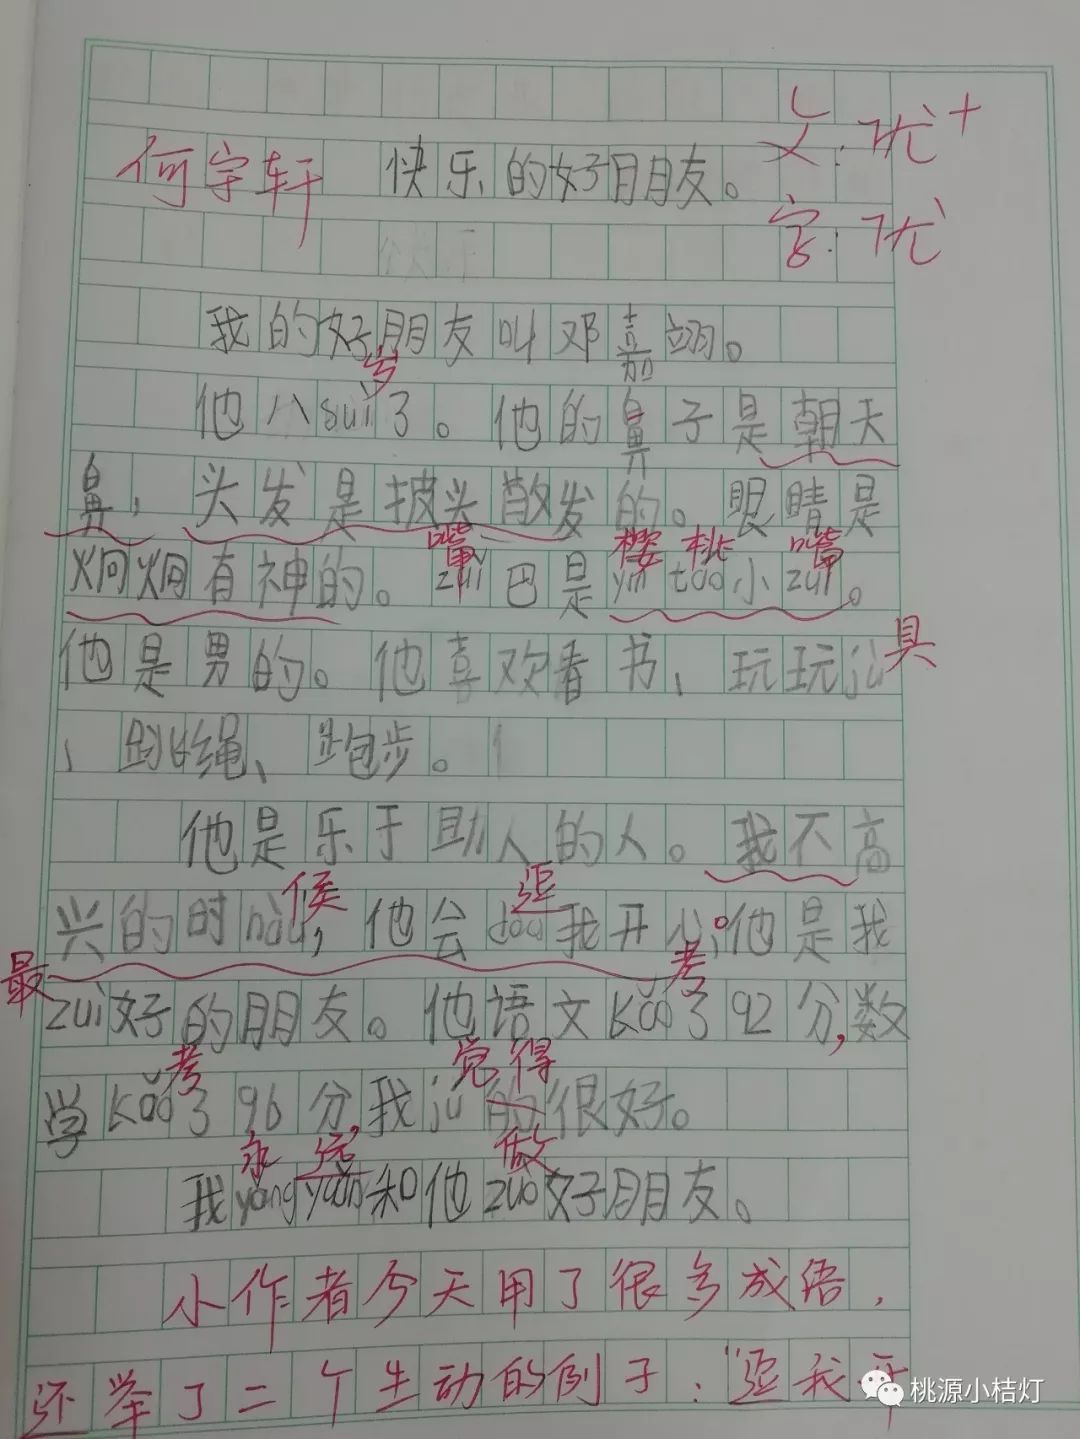 文：优+
何宇轩 快乐的好朋友。
字：优
我的好朋友叫邓嘉翊。
岁
他八suì了。他的鼻子是朝天
鼻，头发是披头散发的。眼睛是
嘴 樱桃 嘴
炯炯有神的。zuǐ巴是yīn táo小zuǐ。
他是男的。他喜欢看书、玩玩jù具
、跳绳、跑步。
他是乐于助人的人。我不高
候 逗
兴的时hòu，他会dòu我开心。他是我
最 考
zuì好的朋友。他语文kǎo了92分，数
考 觉得
学kǎo了96分，我jú的很好。
永远 做
我yǒng yuǎn和他zuò好朋友。
小作者今天用了很多成语，
还举了二个生动的例子：“逗我开
桃源小桔灯